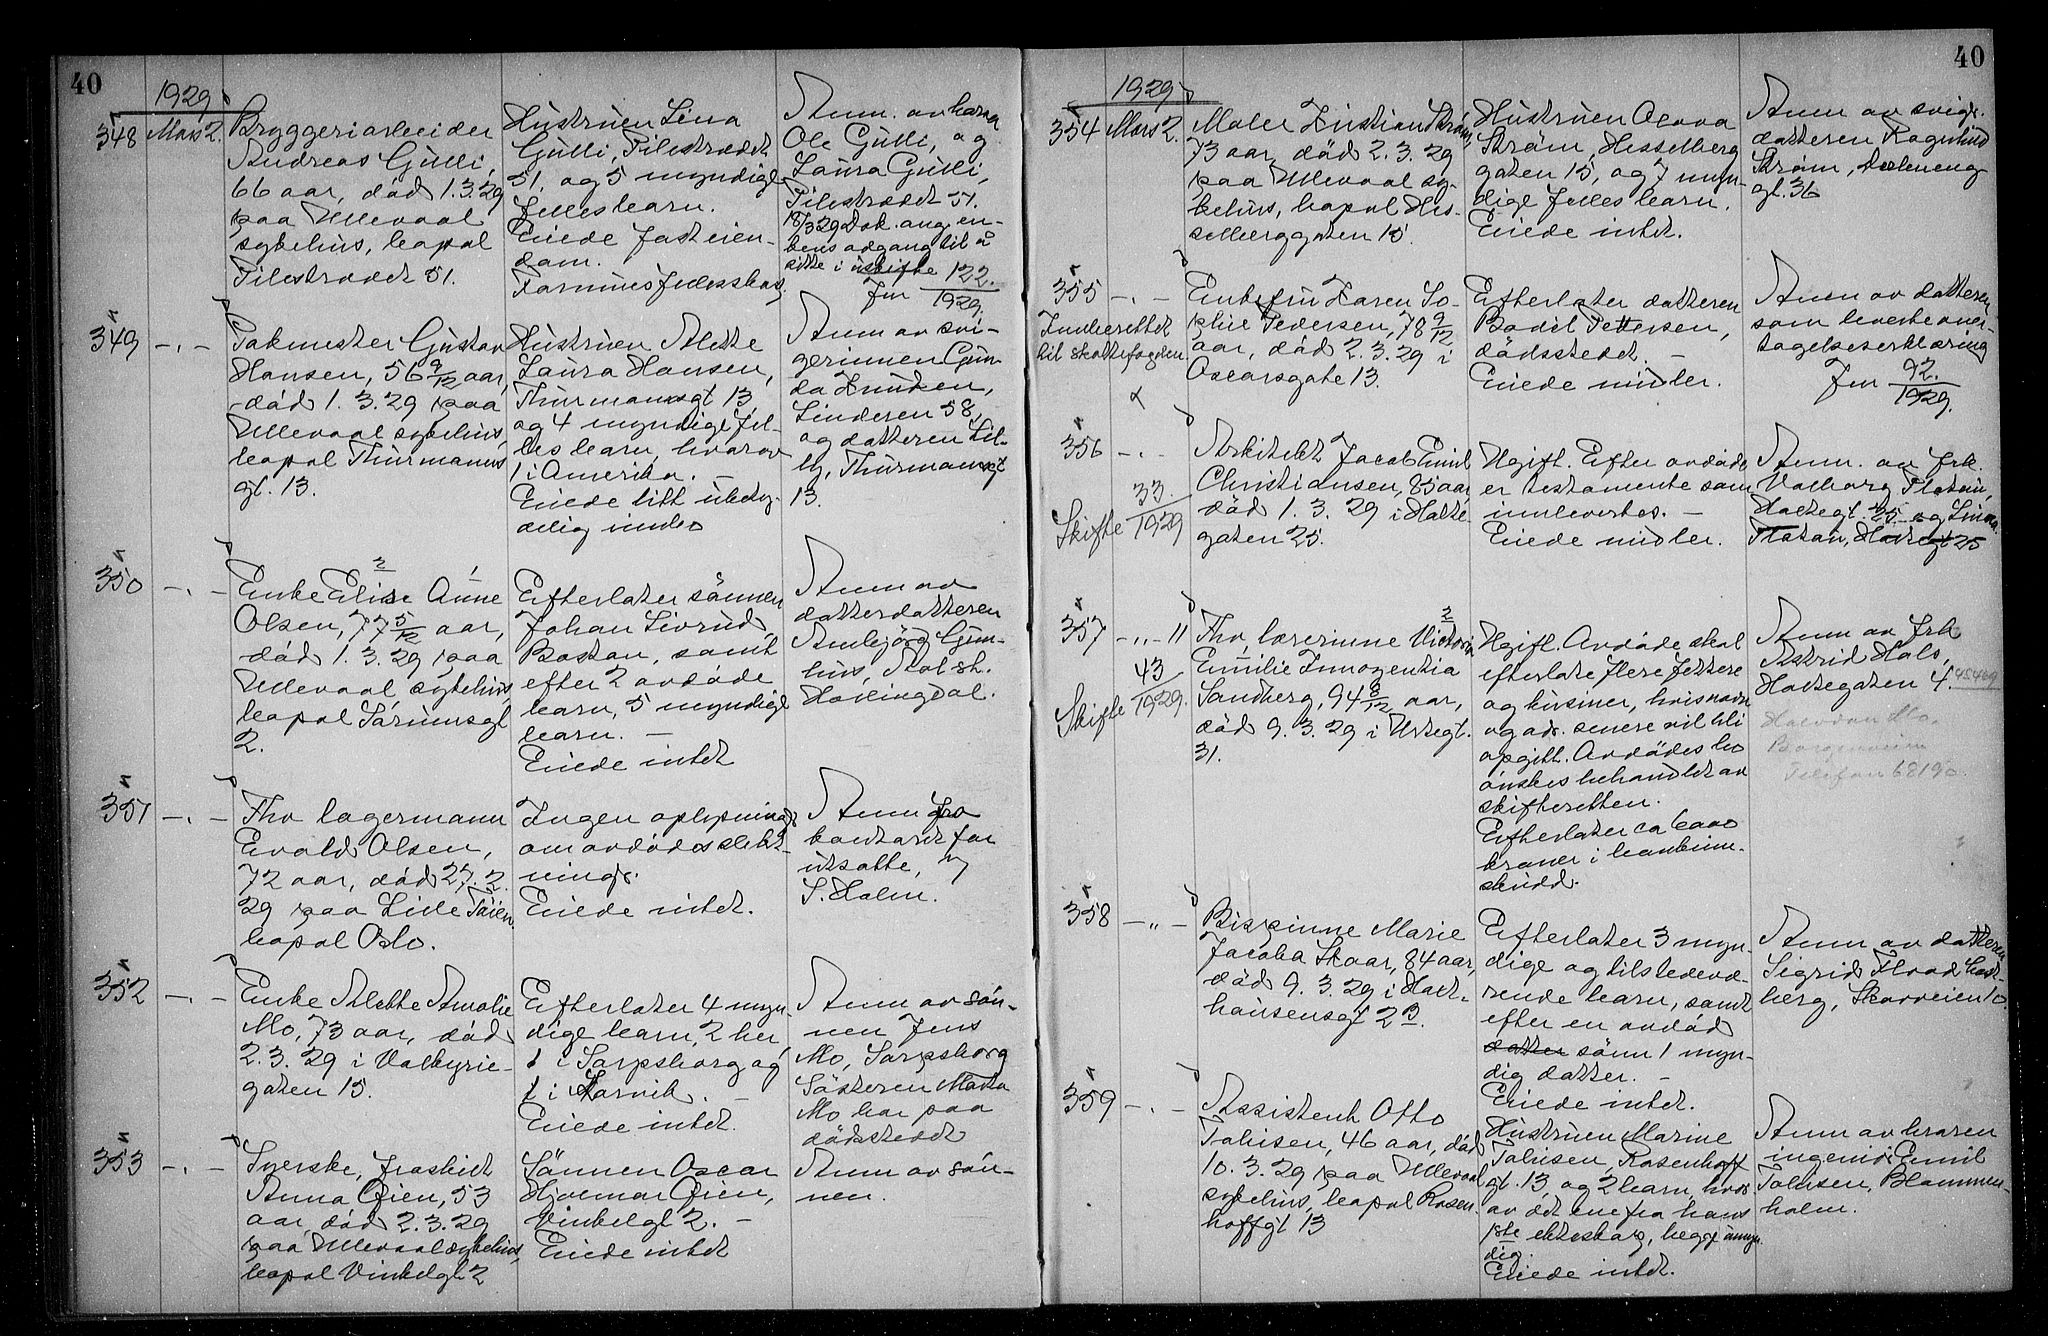 40
1929
348 Mars 2.
Bryggeriarbeider
Andreas Gulli,
66 aar, död 1.3.29
paa Ullevaal
sykehus, bopæl
Pilestrædet 51.
Hustruen Lina
Gulli, Pilestrædet
51, og 5 myndige
felles barn.
Eiede fast eien-
dom.
Formuesfellesskap.
Anm. av barna
Ole Gulli, og
Laura Gulli,
Pilestrædet 51.
18/3 29 Dok. ang. en-
kens adgang til å
sitte i uskifte
Jnr 122.
1929.
349 -.-
Pakmester Gustav
Hansen, 56 9/12 aar,
död 1.3.29 paa
Ullevaal sykehus,
bopæl Thurmanns
gt. 13.
Hustruen Alette
Laura Hansen,
Thurmannsgt 13
og 4 myndige fel-
les barn, hvorav
1 i Amerika. -
Eiede litt ubety-
delig innbo
Anm av svi-
gerinnen Gun-
da Knudsen,
Linderen 58,
og datteren Lil-
ly, Thurmannsgt
13.
350 -.-
Enke Elise Anne
Olsen, 77 5/12 aar,
död 1.3.29 paa
Ullevaal sykehus,
bopæl Sörumsgt
2.
Efterlater sönnen
Johan Livrud,
Boston, samt
efter 2 avdöde
barn, 5 myndige
barn. -
Eiede intet
Anm av
datterdatteren
Ambjörg Gun-
hus, Aal st.
Hallingdal.
351 -.-
Fhv lagermann
Evald Olsen,
72 aar, död 27.2.
29 paa Lille Töien
bopæl Oslo.
Ingen oplysninger
om avdödes slekt-
ninger.
Eiede intet.
Anm fra
kontoret for
utsatte, v/
S. Holm.
352 -.-
Enke Alette Amalie
Mo, 73 aar, död
2.3.29 i Valkyrie-
gaten 15.
Efterlater 4 myn-
dige barn, 2 her,
1 i Sarpsborg og
1 i Narvik. -
Eiede intet.
Anm av sön-
nen Jens
Mo, Sarpsborg
Sösteren Marta
Mo bor paa
dödsstedet
353 -.-
Syerske, fraskilt
Anna Öien, 53
aar, död 2.3.29
paa Ullevaal sykehus,
bopæl Vinkelgt 2
Sönnen Oscar
Hjalmar Öien,
Vinkelgt 2. -
Eiede intet
Anm av sön-
nen.
40
1929
354 Mars 2.
Maler Kristian Ström,
73 aar, död 2.3.29
paa Ullevaal sy-
kehus, bopæl Hes-
selberggaten 15.
Hustruen Olava
Ström, Hesselberg
gaten 15, og 7 myn-
dige felles barn.
Eiede intet.
Anm av sviger-
datteren Ragnhild
Ström, Dæleneng
gt. 36
355 -.-
Innberettet
til skattefogden
Enkefru Karen So-
phie Pedersen, 78 9/12
aar, död 2.3.29 i
Oscarsgate 13.
Efterlater datteren
Bodil Pettersen,
dödsstedet. -
Eiede midler.
Anm av datteren
som leverte over-
tagelseserklæring
Jnr 92.
1929.
356 -.-
Skifte 33.
1929
Arkitekt Jacob Emil
Christiansen, 85 aar,
död 1.3.29 i Holte-
gaten 25.
Ugift. Efter avdöde
er testamente som
innlevertes. -
Eiede midler.
Anm. av frk.
Valborg Platou,
Holtegt. 25 og Linea
Platou, Holtegt 25
357 -.- 11
Skifte 43
1929.
Fhv. lærerinne Victoria
Emilie Innogentia
Sandberg, 94 8/12 aar,
död 9.3.29 i Urtegt.
31.
Ugift. Avdöde skal
efterlate flere fettere
og kusiner, hvis navn
og adr. senere vil bli
opgitt. Avdödes bo
önskes behandlet av
skifteretten.
Efterlater ca 6000
kroner i bankinn-
skudd.
Anm av frk
Astrid Hals,
Holtegaten 4. 45469
Telefon 68190
358 -"-
Bispinne Marie
Jacoba Skaar, 84 aar,
död 9.3.29 i Holt-
hausensgt 2 D.
Efterlater 3 myn-
dige og tilstedevæ-
rende barn, samt
efter en avdöd
datter sönn 1 myn-
dig datter. -
Eiede intet.
Anm av datteren
Sigrid Flood Hast-
berg, Skovveien 10.
359 -.-
Assistent Otto
Paulsen, 46 aar, död
10.3.29 paa Ullevaal
sykehus, bopæl Rosen-
hoffgt 13
Hustruen Marine
Paulsen, Rosenhoff
gt. 13 og 2 barn, hvor
av det ene fra hans
1ste ekteskap, begge umyn-
dig.
Eiede intet.
Anm av broren
ingeniör Emil
Paulsen, Blommen-
holm.